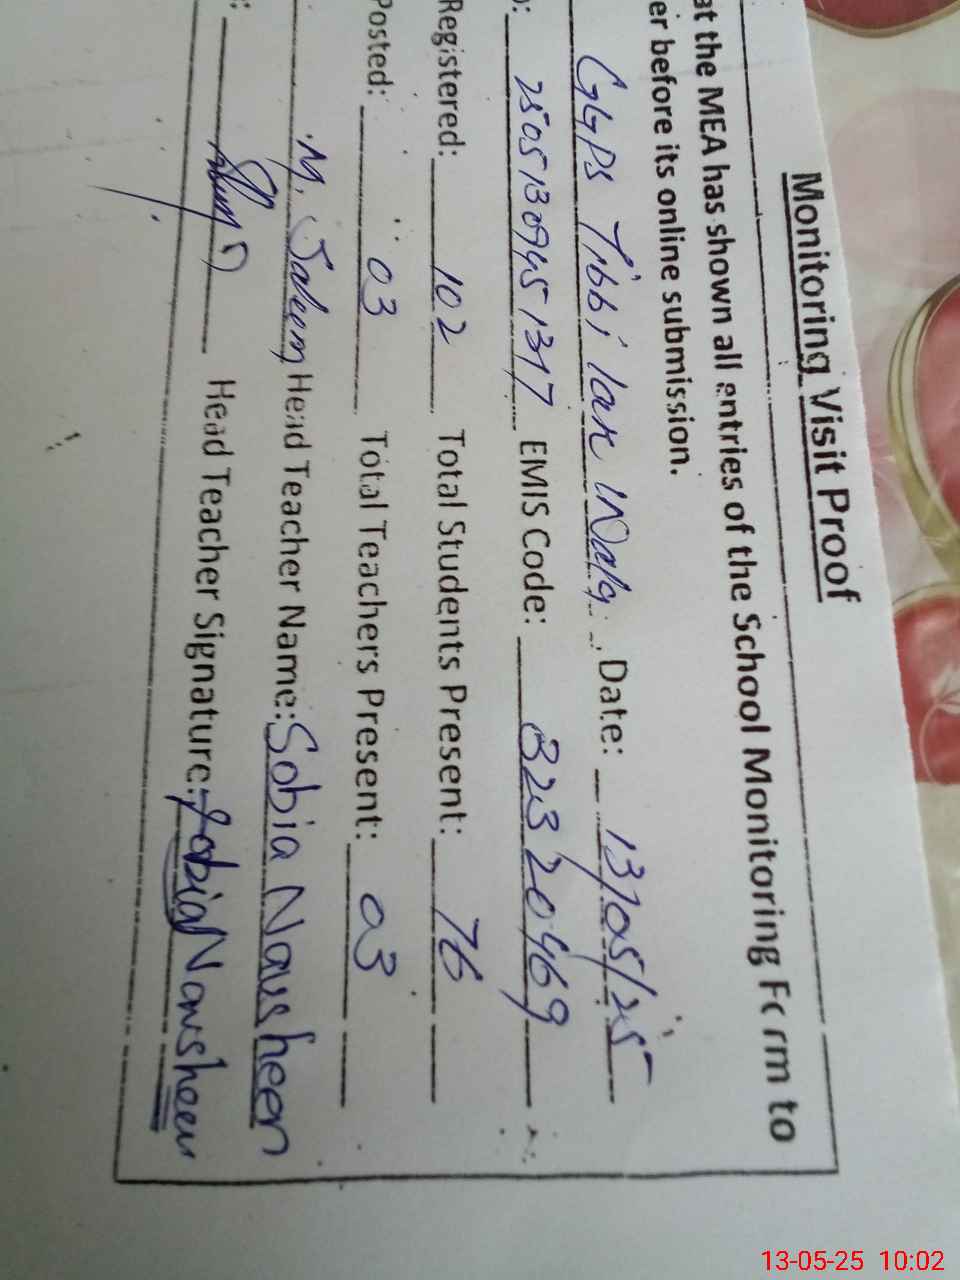 Monitoring Visit Proof
at the MEA has shown all entries of the School Monitoring Form to
er before its online submission.
GGPS Tibbi lar Wala Date: 13/05/25
): 25051309451317 EMIS Code: 32320469
Registered: 102 Total Students Present: 76
Posted: 03 Total Teachers Present: 03
M. Saleem Head Teacher Name: Sobia Nausheen
: Head Teacher Signature: Sobia Nausheen
13-05-25 10:02